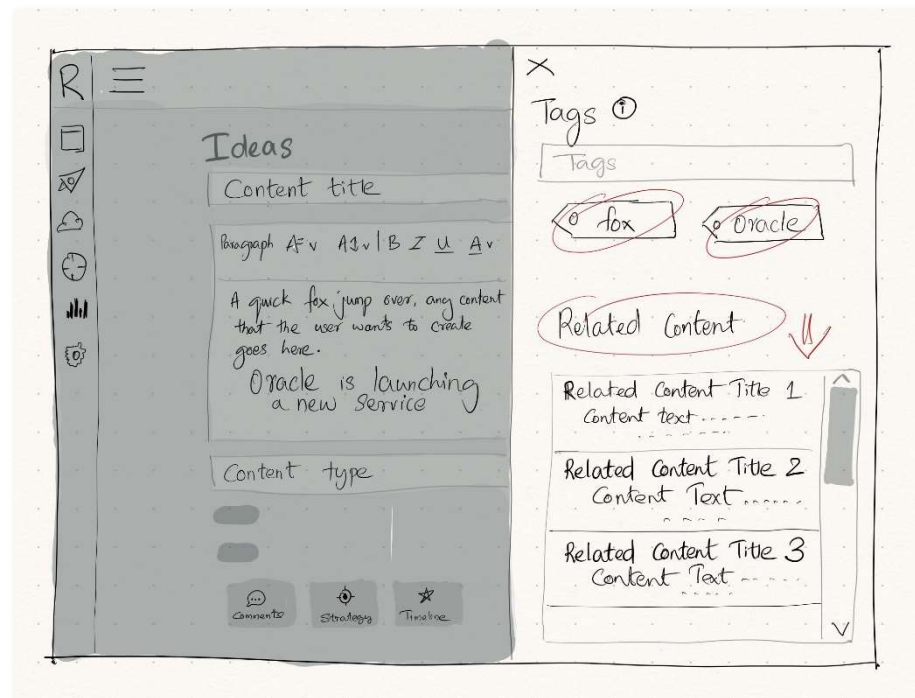 R
Ideas
Content title
Paragraph A v A1 v | B I U A v
A quick fox, jump over, any content
that the user wants to create
goes here.
Oracle is launching
a new Service
Content type
Comments
Strategy
Timeline
X
Tags i
Tags
fox
Oracle
Related Content
Related Content Title 1
Content text ------
Related Content Title 2
Content Text ......
Related Content Title 3
Content Text -----